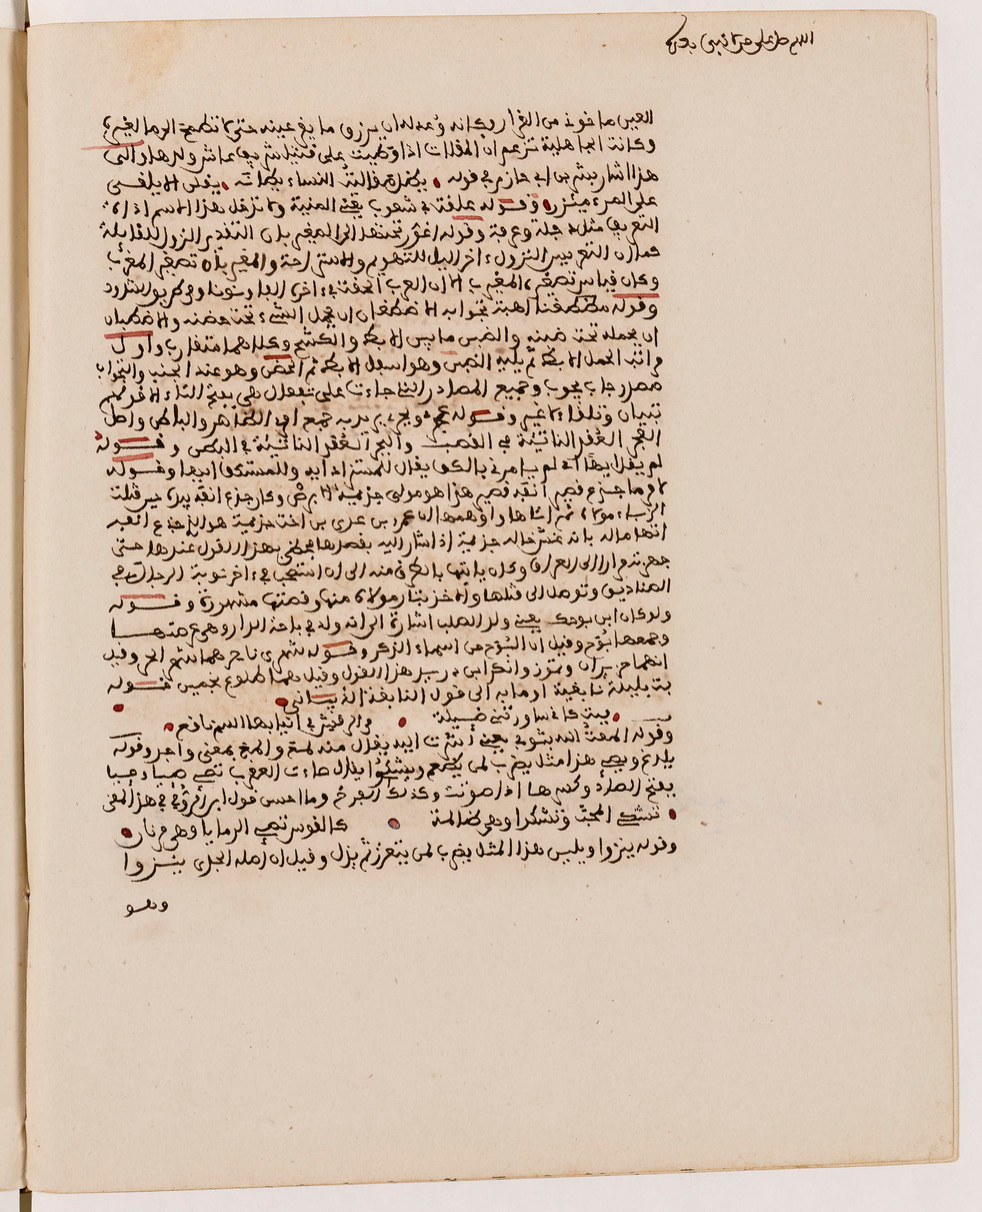 اللهم صل على النبي
العين ماخوذ من القرار وكانه دعا له ان يرزق ما يقر عينه حتى لا تطمح الى ما لغيره
وكانت الجاهلية تزعم ان المقلات اذا وطيت على قتيل شريف عاش ولدها والى
هذا اشار بشر بن ابي خازم في قوله تظل مقاليت النساء يطانه يقلن الا يلقى
على المرء ميزر وقوله علقت به شعوب يعني المنية ولا تدخل هذا الاسم اداة
التعريف مثل دجلة وعرفة وقوله
كما ان التعريس النزول اخر الليل للتهويم والاستراحة
وكان قياس تصغير المغرب الا ان العرب الحقت في اخره الفا ونونا
وقوله مضطبنا اهبة تجوابه الاضطغان ان يحمل الشيء تحت حضنه والاضطبان
ان يحمله تحت ضبنه والضبن ما بين الابط والكشح وكلاهما متقارب واول
مراتب الحمل الابط ثم يليه الضبن وهو اسفل الابط ثم الحضن وهو عند الجنب والتجواب
مصدر جاب يجوب وجميع المصادر التي جاءت على تفعال هي بفتح التاء الا قولهم
تبيان وتلقاء لا غير وقوله عجره وبجره يريد به جميع امره الظاهر والباطن واصل
العجر العقد الناتية في العصب والبجر العقد الناتية في البطن وقوله
لم يقل ايها اي لم يامرني بالكف يقال للمستزاد ايه وللمستكف ايها وقوله
لامر ما جدع قصير انفه قصير هذا هو مولى جذيمة الابرش وكان جدع انفه بيده حين قتلت
الزباء مولاه ثم اتاها واوهمها ان عمرو بن عدي بن اخت جذيمة هو الذي جدع انفه
اتهاما له بانه غش خاله جذيمة اذ اشار اليه بقصدها فحظي بهذا القول عندها حتى
جهزته مرارا الى العراق وكان ياتيها بالطرف منه الى ان استصحب في اخر نوبة الرجال في
الصناديق وتوصل الى قتلها والاخذ بثار مولاه منها وقصتها مشهورة وقوله
ولو كان ابن بوحك يعني ولد الصلب اشارة الى انه ولد في باحة الدار وهي عرصتها
وجمعها بوح وقيل ان البوح من اسماء الذكر وقوله شهري ناجر هما شهرا الحر وقيل
انهما حزيران وتموز وانكر ابن دريد هذا القول وقيل هما طلوع نجمين وقوله
بت بليلة نابغية اوما به الى قول النابغة الذبياني
فبت كاني ساورتني ضئيلة من الرقش في انيابها السم ناقع
وقوله
يلدغ ويصي هذا مثل يضرب لمن يظلم ويشكو يقال صاءت العقرب تصي صيا وصيا
بفتح الصاد وكسرها اذا صوتت وكذلك الفرخ وما احسن قول ابن الرومي في هذا المعنى
تشكي المحب وتشكوا وهي ظالمة كالقوس تصمي الرمايا وهي مرنان
وقوله ينزوا ويلين هذا المثل يضرب لمن يتعزز ثم يذل وقيل ان اصله الجدي ينزوا
وهو